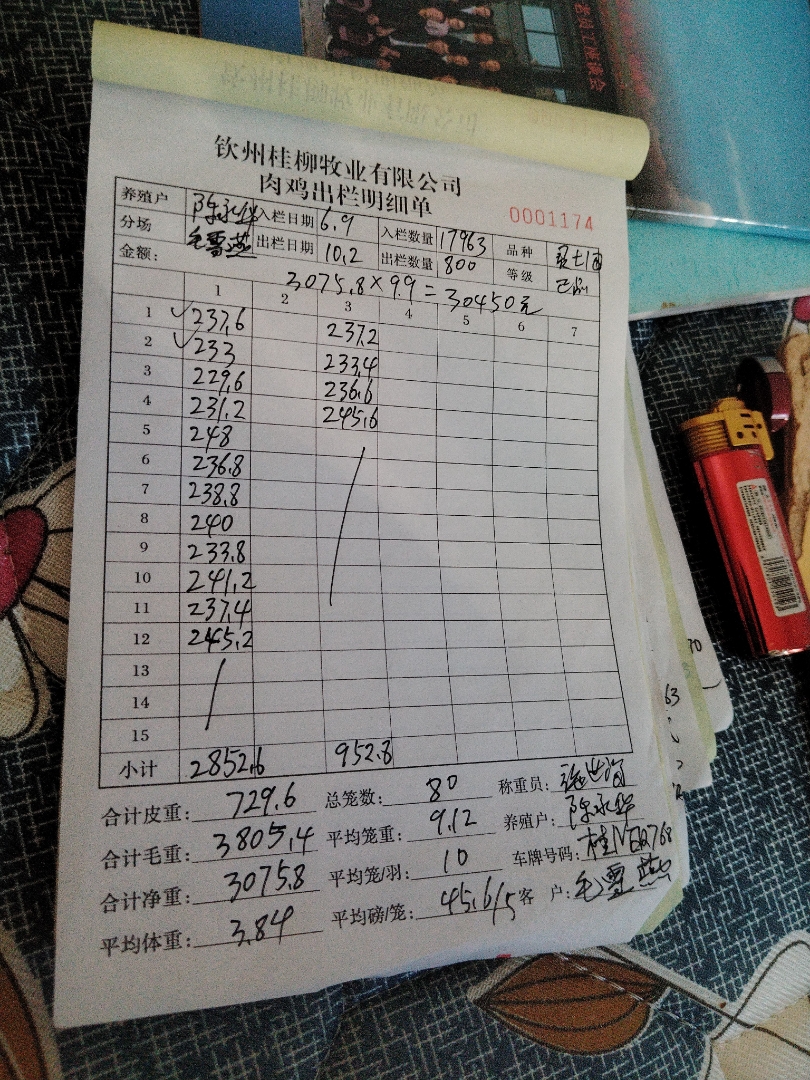 钦州桂柳牧业有限公司
肉鸡出栏明细单
0001174
养殖户 陈永华 入栏日期 6.9 入栏数量 17963 品种
分场 毛雪燕 出栏日期 10.2 出栏数量 800 等级
金额: 3075.8×9.9=30450元
1 2 3 4 5 6 7
1 237.6 237.2
2 233 233.4
3 229.6 236.6
4 231.2 245.6
5 248
6 236.8
7 238.8
8 240
9 233.8
10 241.2
11 237.4
12 245.2
13
14
15
小计 2852.6 952.8
合计皮重: 729.6 总笼数: 80 称重员:
合计毛重: 3805.4 平均笼重: 9.12 养殖户: 陈永华
合计净重: 3075.8 平均笼/羽: 10 车牌号码:
平均体重: 3.84 平均磅/笼: 45.6/5 客 户: 毛雪燕